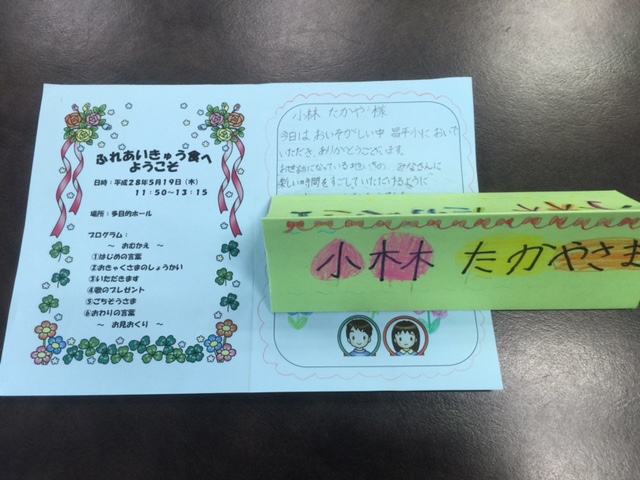 ふれあいきゅう食へ
ようこそ
日時:平成28年5月19日(木)
11:50~13:15
場所:多目的ホール
プログラム:
~ おむかえ ~
①はじめの言葉
②おきゃくさまのしょうかい
③いただきます
④歌のプレゼント
⑤ごちそうさま
⑥おわりの言葉
~ お見おくり ~
小林 たかや 様
今日は おいそがしい中 昌平小に おいで
いただき、ありがとうございます。
お世話になっている地いきの みなさんに
楽しい時間をすごしていただけるように
小林 たかやさま